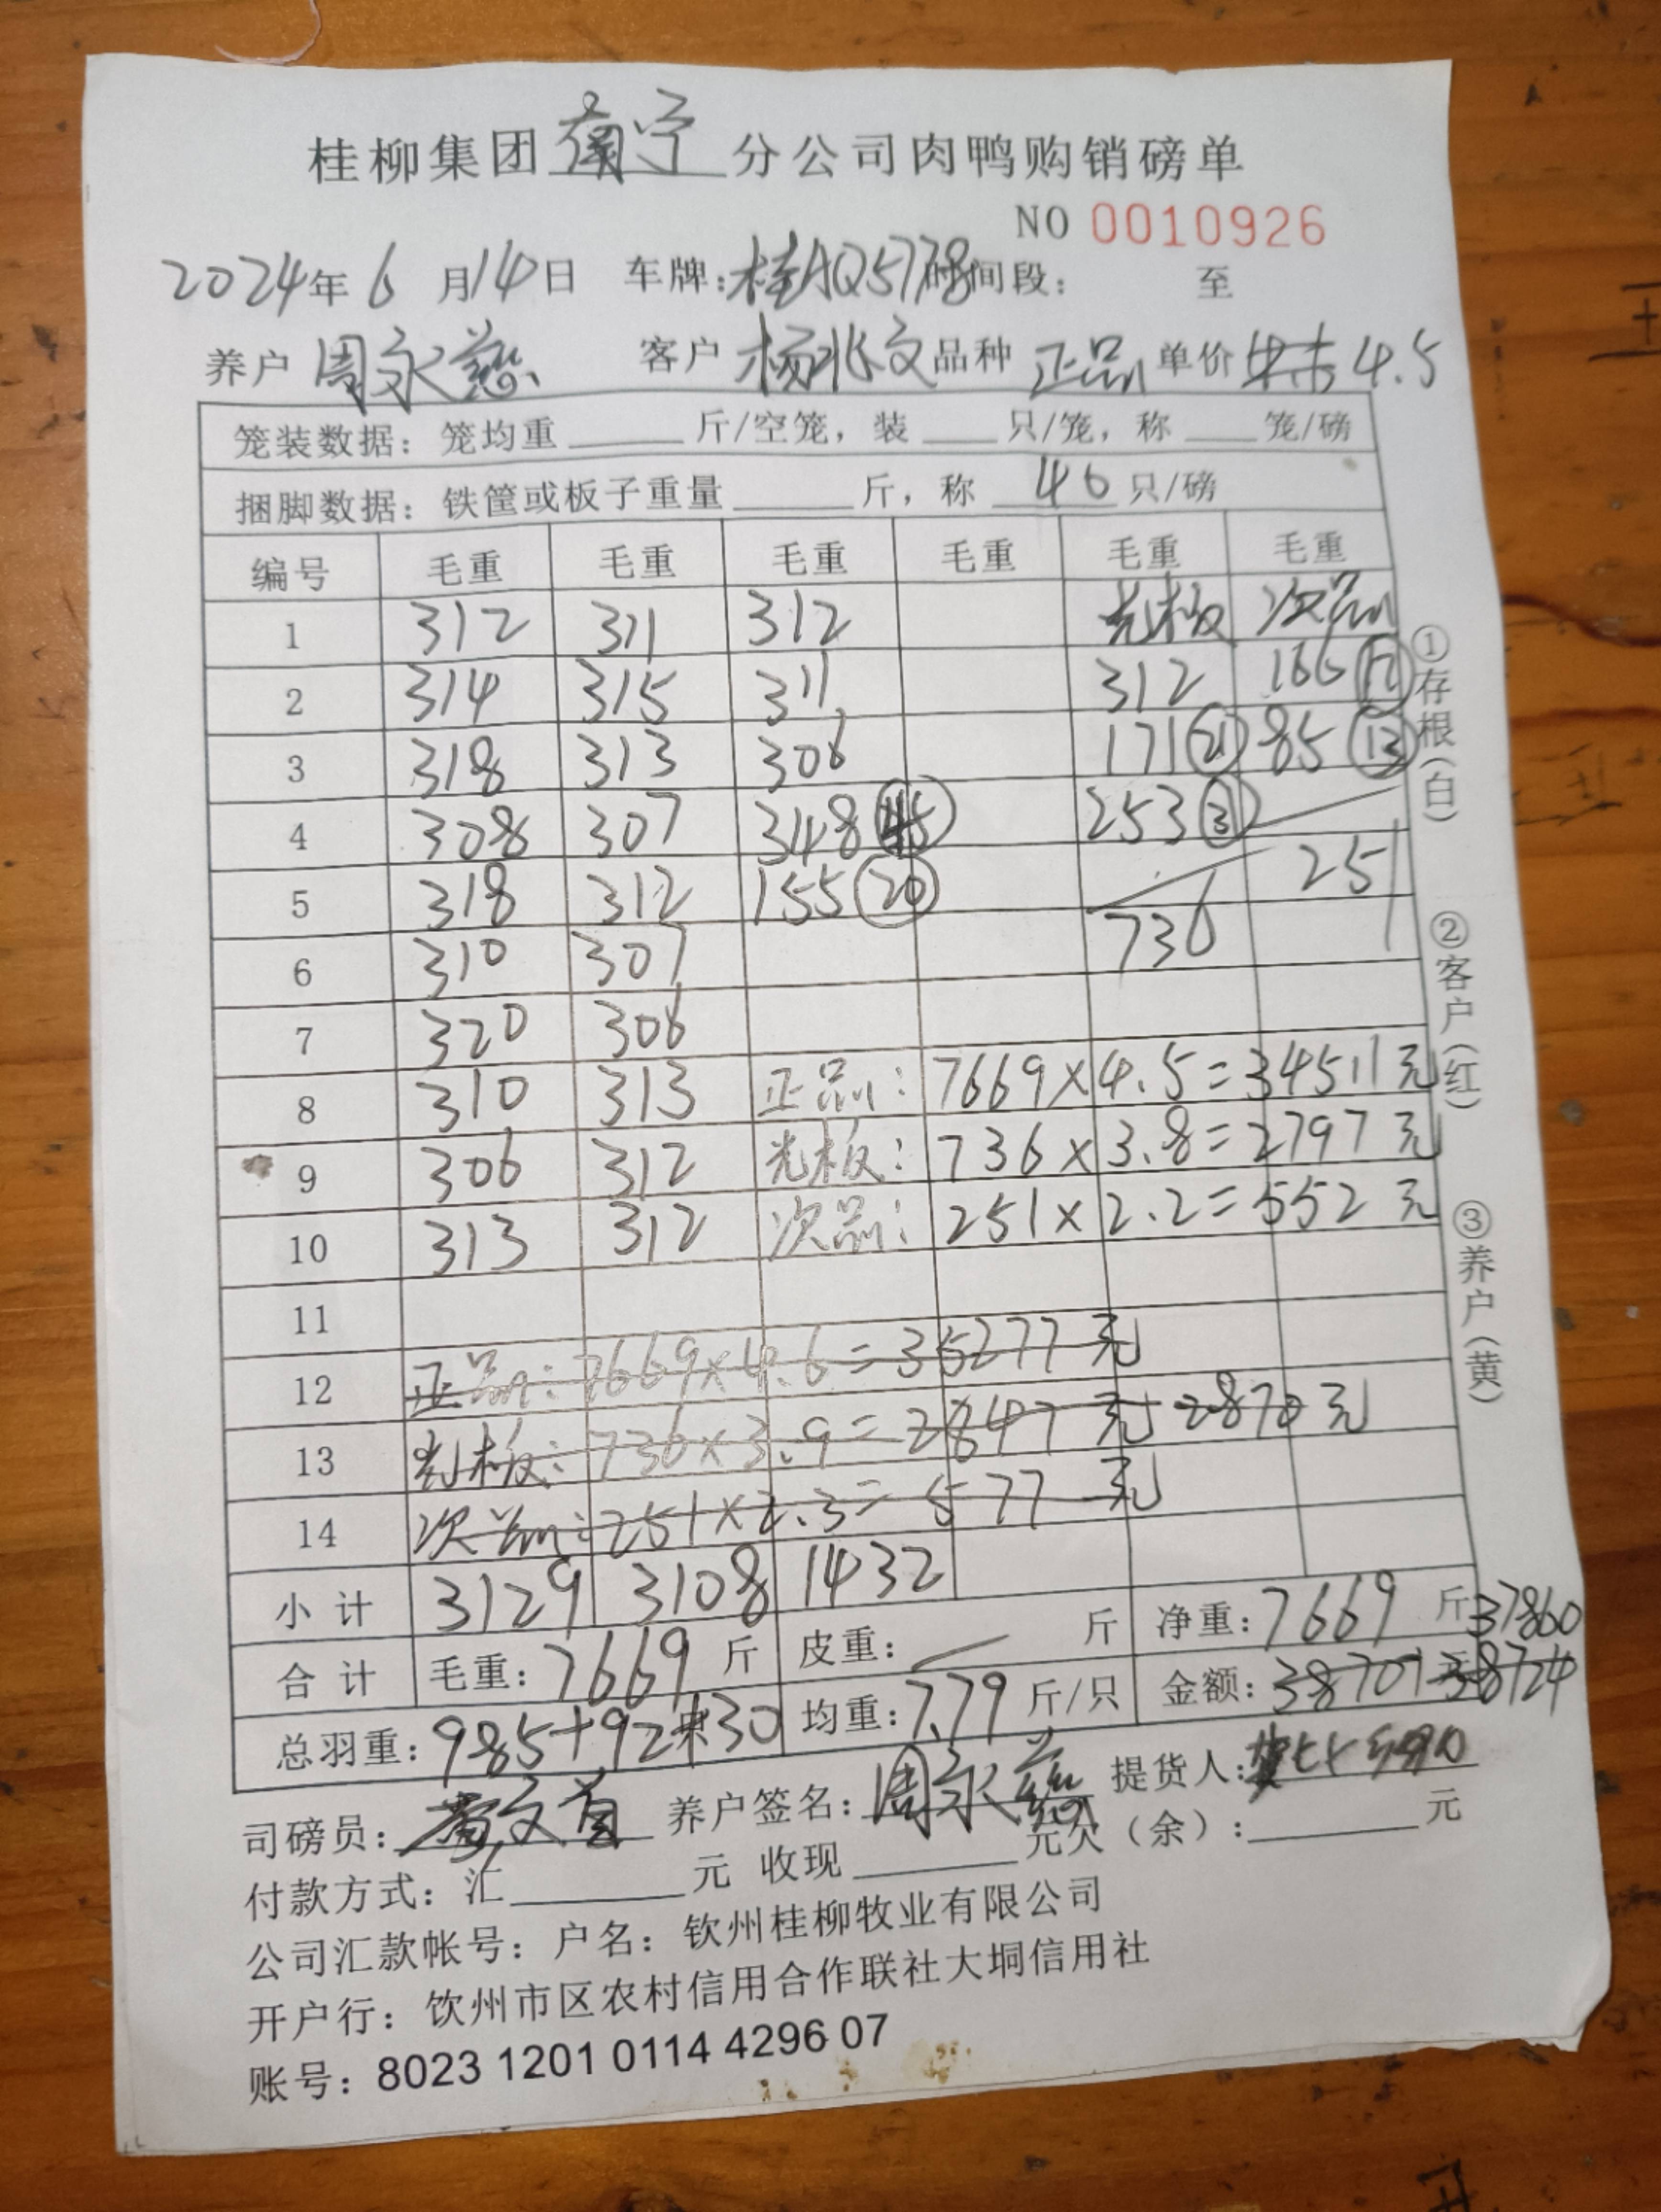 桂柳集团南宁分公司肉鸭购销磅单
NO 0010926
2024年6月14日 车牌:桂AQ5778时间段: 至
养户 周永慈 客户 杨兆文 品种 正品 单价 4.5
笼装数据: 笼均重 斤/空笼, 装 只/笼, 称 笼/磅
捆脚数据: 铁筐或板子重量 斤, 称 46 只/磅
编号 毛重 毛重 毛重 毛重 毛重 毛重
1 312 311 312 光板 次品
2 314 315 311 312 166
3 318 313 306 171 21 85 13
4 308 307 348 45 253
5 318 312 155 20 251
6 310 307 736
7 320 306
8 310 313 正品: 7669×4.5=34511元
9 306 312 光板: 736×3.8=2797元
10 313 312 次品: 251×2.2=552元
11
12 正品: 7669×4.6=35277元
13 光板: 736×3.9=2847元 2870元
14 次品: 251×2.3=577元
小计 3129 3108 1432
合计 毛重: 7669 斤 皮重: 斤 净重: 7669 斤 37860
总羽重: 985+92+30 均重: 7.79 斤/只 金额: 38701 元 38724
司磅员: 养户签名: 周永慈 提货人:
付款方式: 汇 元 收现 元欠(余): 元
公司汇款帐号: 户名: 钦州桂柳牧业有限公司
开户行: 钦州市区农村信用合作联社大垌信用社
账号: 8023 1201 0114 4296 07
①存根(白)
②客户(红)
③养户(黄)